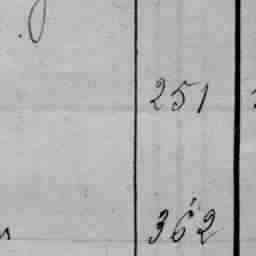 251
362